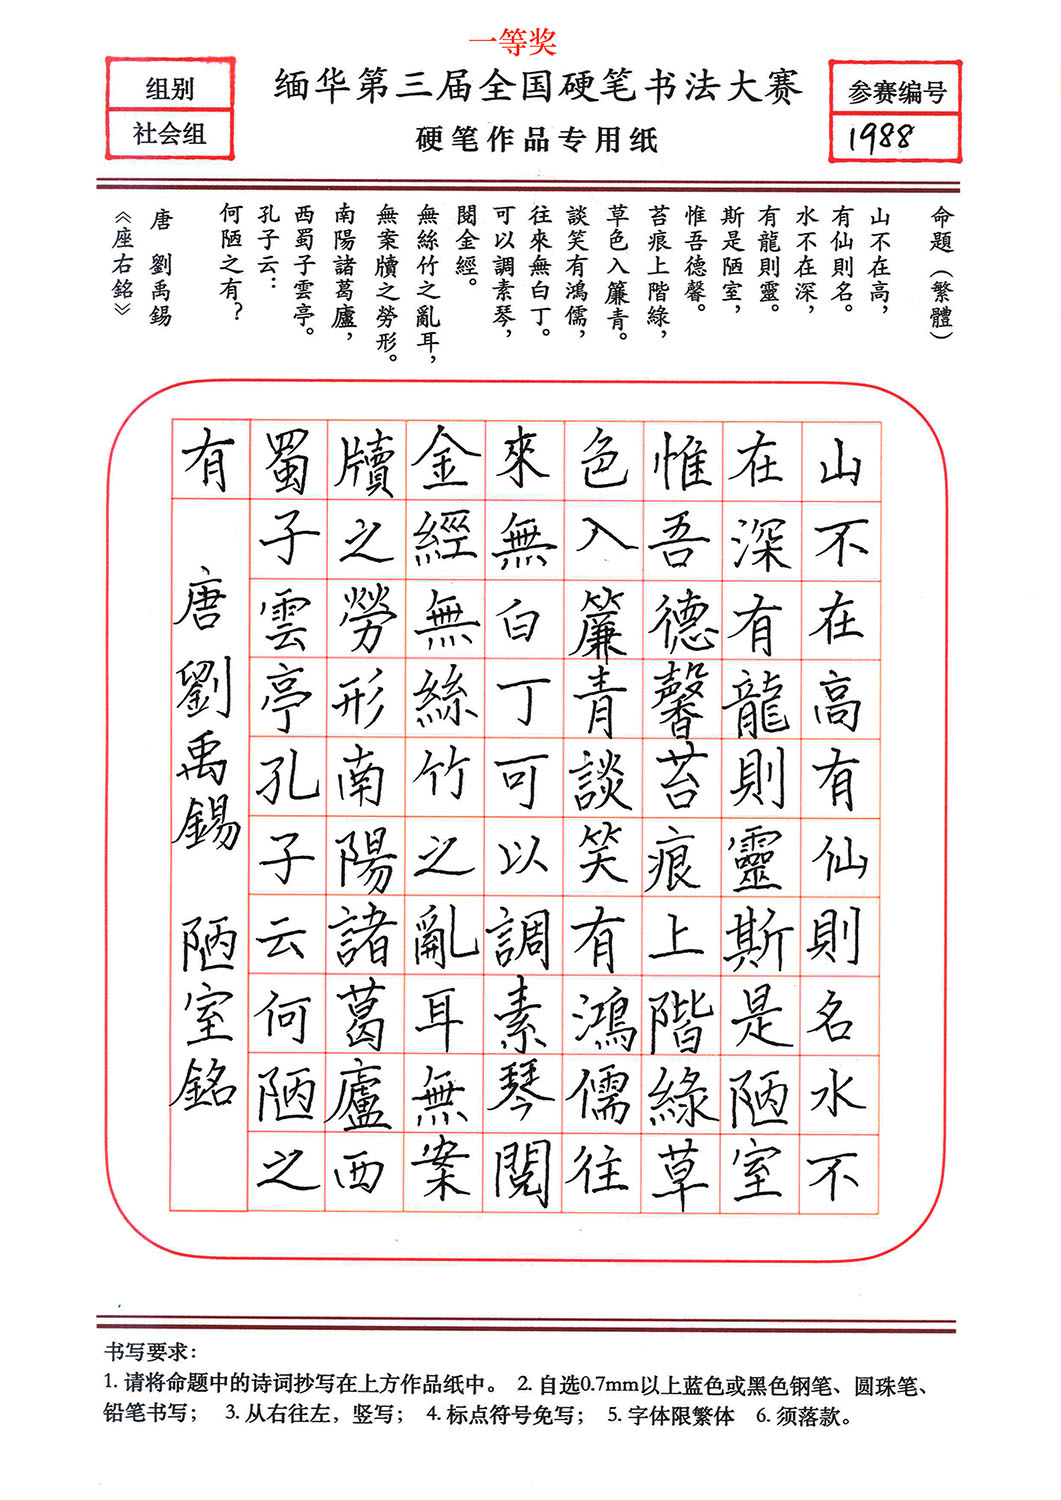 一等奖
缅华第三届全国硬笔书法大赛
硬笔作品专用纸
组别
社会组
参赛编号
1988
命題（繁體）
山不在高，
有仙則名。
水不在深，
有龍則靈。
斯是陋室，
惟吾德馨。
苔痕上階綠，
草色入簾青。
談笑有鴻儒，
往來無白丁。
可以調素琴，
閱金經。
無絲竹之亂耳，
無案牘之勞形。
南陽諸葛廬，
西蜀子雲亭。
孔子云：
何陋之有？
唐 劉禹錫
《座右銘》
山不在高有仙則名水不
在深有龍則靈斯是陋室
惟吾德馨苔痕上階綠草
色入簾青談笑有鴻儒往
來無白丁可以調素琴閱
金經無絲竹之亂耳無案
牘之勞形南陽諸葛廬西
蜀子雲亭孔子云何陋之
有 唐劉禹錫 陋室銘
书写要求：
1. 请将命题中的诗词抄写在上方作品纸中。 2. 自选0.7mm以上蓝色或黑色钢笔、圆珠笔、
铅笔书写； 3. 从右往左，竖写； 4. 标点符号免写； 5. 字体限繁体 6. 须落款。